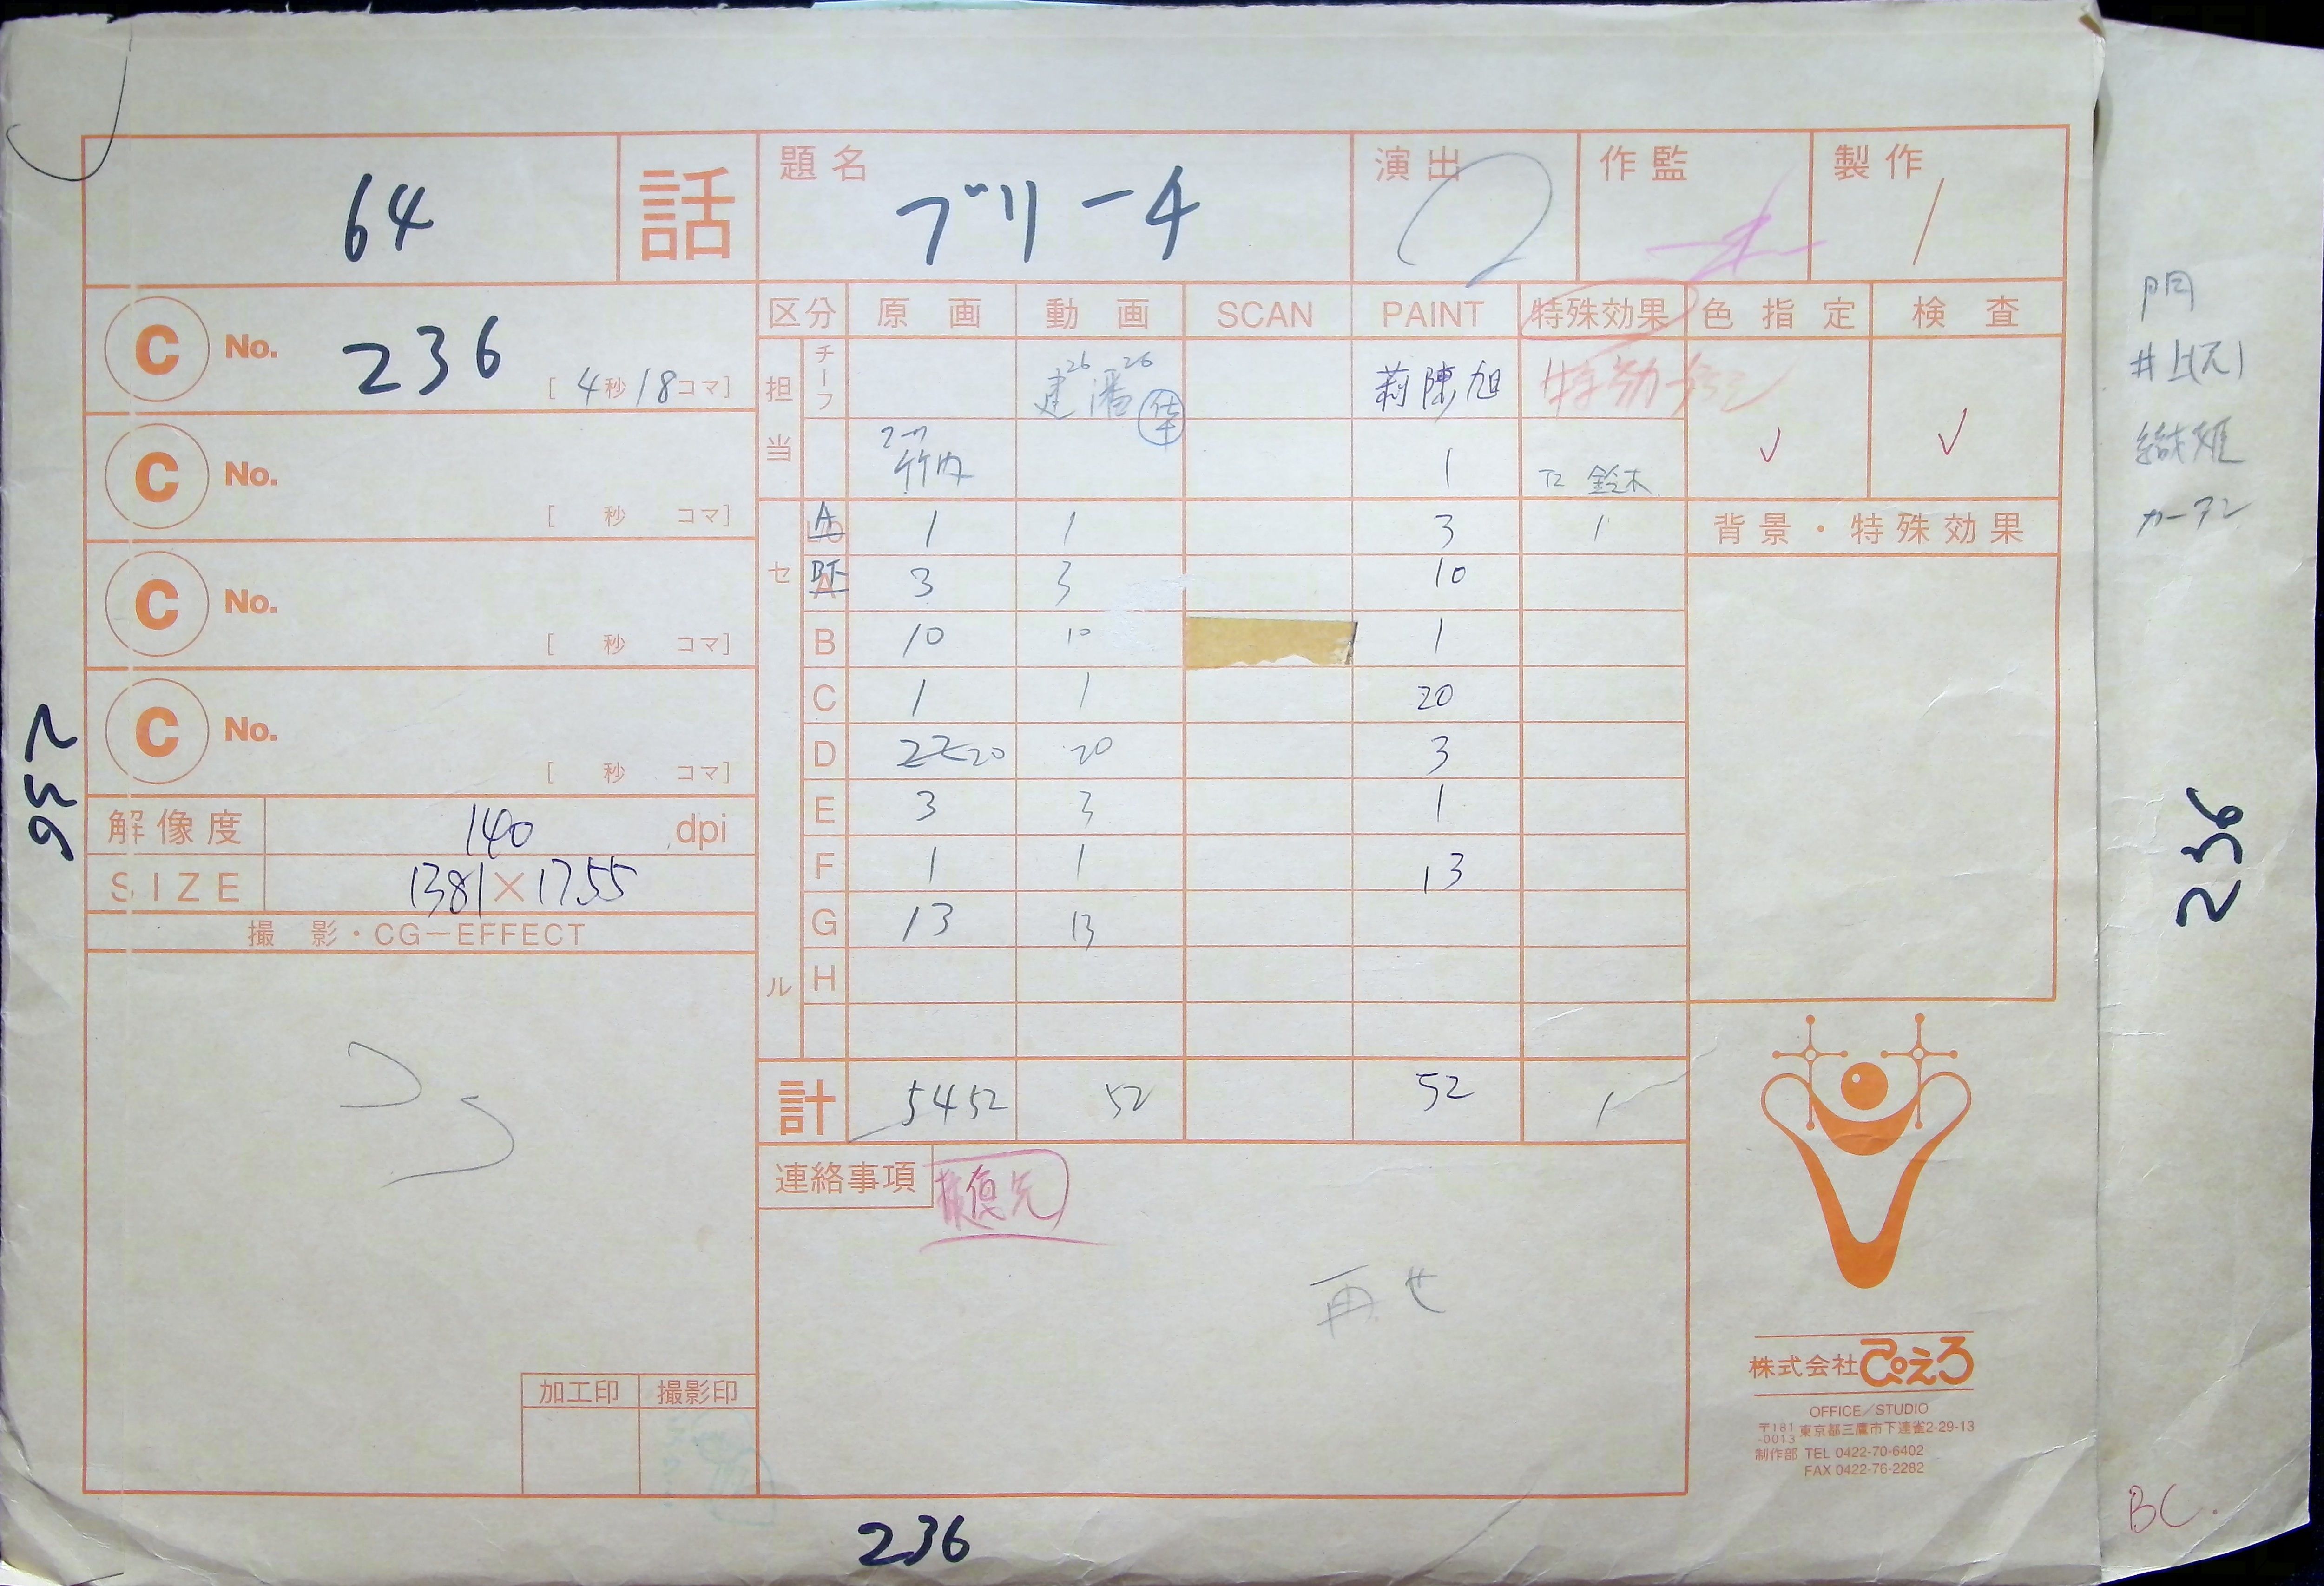 64 話
題名 ブリーチ
演出
作監
製作
C No. 236 [4秒18コマ]
C No. [ 秒 コマ]
C No. [ 秒 コマ]
C No. [ 秒 コマ]
解像度 140 dpi
SIZE 1381×1755
撮影・CG-EFFECT
加工印 撮影印
区分 原画 動画 SCAN PAINT 特殊効果 色指定 検査
担当 チーフ
26 26
莉 陳 旭
竹内 1 鈴木
セル
A 1 1 3 1
B下 3 3 10
B 10 10 1
C 1 1 20
D 22 20 20 3
E 3 3 1
F 1 1 13
G 13 13
H
計 54 52 52 52 1
背景・特殊効果
連絡事項
復元
再セ
株式会社ぴえろ
OFFICE/STUDIO
〒181-0013 東京都三鷹市下連雀2-29-13
制作部 TEL 0422-70-6402
FAX 0422-76-2282
236
236
236
門
井上(兄)
織姫
カーテン
BC.